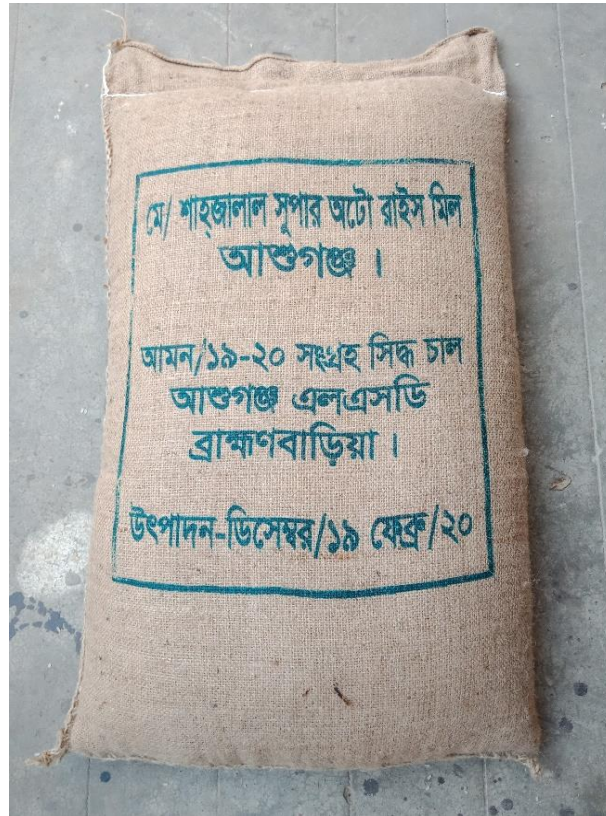 মে/ শাহ্জালাল সুপার অটো রাইস মিল
আশুগঞ্জ।
আমন/১৯-২০ সংগ্রহ সিদ্ধ চাল
আশুগঞ্জ এলএসডি
ব্রাহ্মণবাড়িয়া।
উৎপাদন-ডিসেম্বর/১৯ ফেব্রু/২০